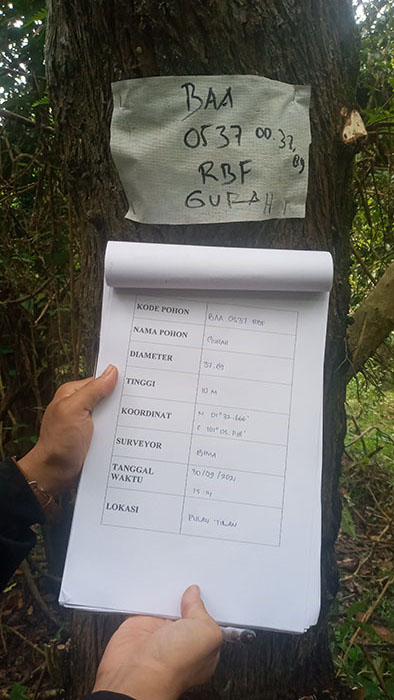 BAA
0537 00.37,
89
RBF
GURAH
KODE POHON BAA 0537 RBF
NAMA POHON GURAH
DIAMETER 37,89
TINGGI 10 M
KOORDINAT N 01° 32.666'
E 101°
SURVEYOR BIMA
TANGGAL 30/09/2021
WAKTU 15.14
LOKASI PULAU TILAN